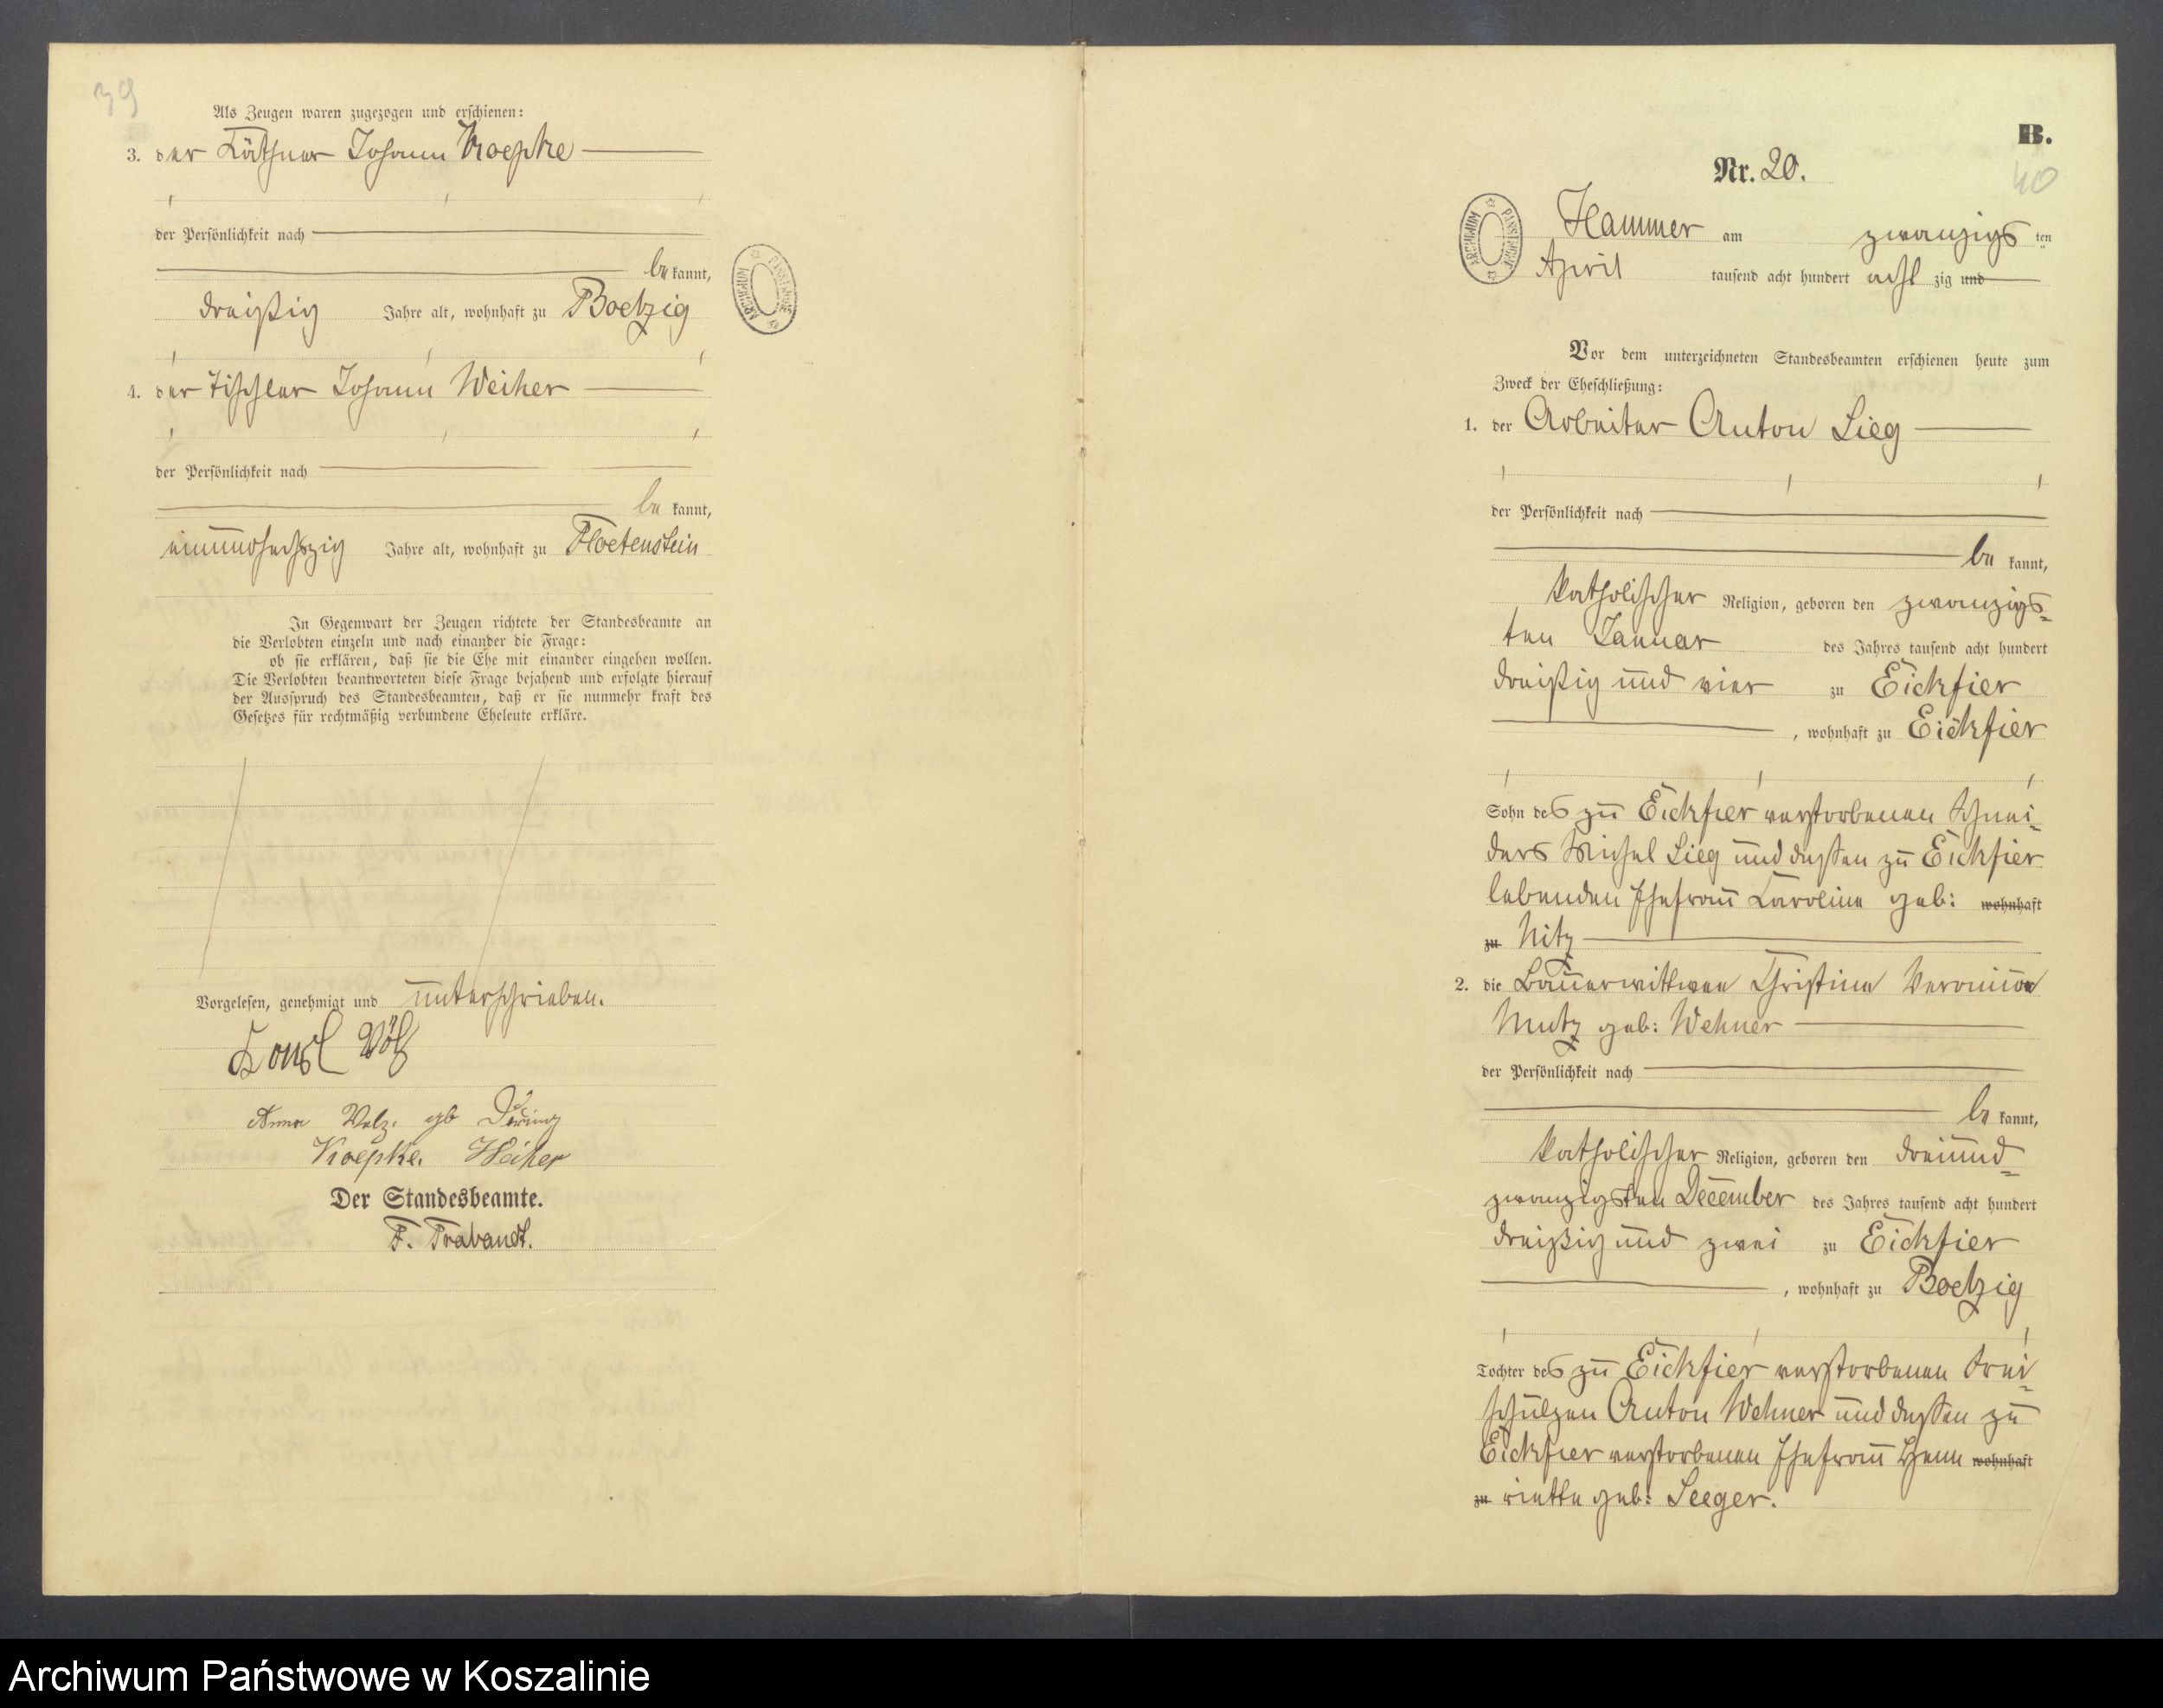 39
Als Zeugen waren zugezogen und erschienen:
3. der Käthner Johann Kroepke
der Persönlichkeit nach
be kannt,
dreißig Jahre alt, wohnhaft zu Boetzig
4. der Tischler Johann Weiher
der Persönlichkeit nach
be kannt,
einundsechszig Jahre alt, wohnhaft zu Floetenstein
In Gegenwart der Zeugen richtete der Standesbeamte an
die Verlobten einzeln und nach einander die Frage:
ob sie erklären, daß sie die Ehe mit einander eingehen wollen.
Die Verlobten beantworteten diese Frage bejahend und erfolgte hierauf
der Ausspruch des Standesbeamten, daß er sie nunmehr kraft des
Gesetzes für rechtmäßig verbundene Eheleute erkläre.
Vorgelesen, genehmigt und unterschrieben.
Anna Volz. gb Döring
Kroepke. Weiher
Der Standesbeamte.
F. Trabandt.
ARCHIWUM PAŃSTWOWE
B.
Nr. 20.
40
ARCHIWUM PAŃSTWOWE
Hammer am zwanzigs ten
April tausend acht hundert acht zig und
Vor dem unterzeichneten Standesbeamten erschienen heute zum
Zweck der Eheschließung:
1. der Arbeiter Anton Lieg
der Persönlichkeit nach
be kannt,
katholischer Religion, geboren den zwanzigs-
ten Januar des Jahres tausend acht hundert
dreißig und vier zu Eickfier
, wohnhaft zu Eickfier
Sohn des zu Eickfier verstorbenen Schnei-
ders Michel Lieg und dessen zu Eickfier
lebenden Ehefrau Caroline geb: wohnhaft
zu Nitz
2. die Bauerwittwe Christine Veronica
Mutz geb: Wehner
der Persönlichkeit nach
be kannt,
katholischer Religion, geboren den dreiund-
zwanzigsten December des Jahres tausend acht hundert
dreißig und zwei zu Eickfier
, wohnhaft zu Boetzig
Tochter des zu Eickfier verstorbenen Frei-
schulzen Anton Wehner und dessen zu
Eickfier verstorbenen Ehefrau Hen wohnhaft
zu riette geb: Seeger.
Archiwum Państwowe w Koszalinie